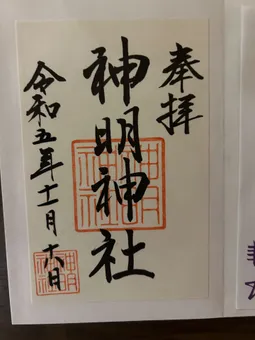 奉拝
神明神社
令和五年十一月十八日